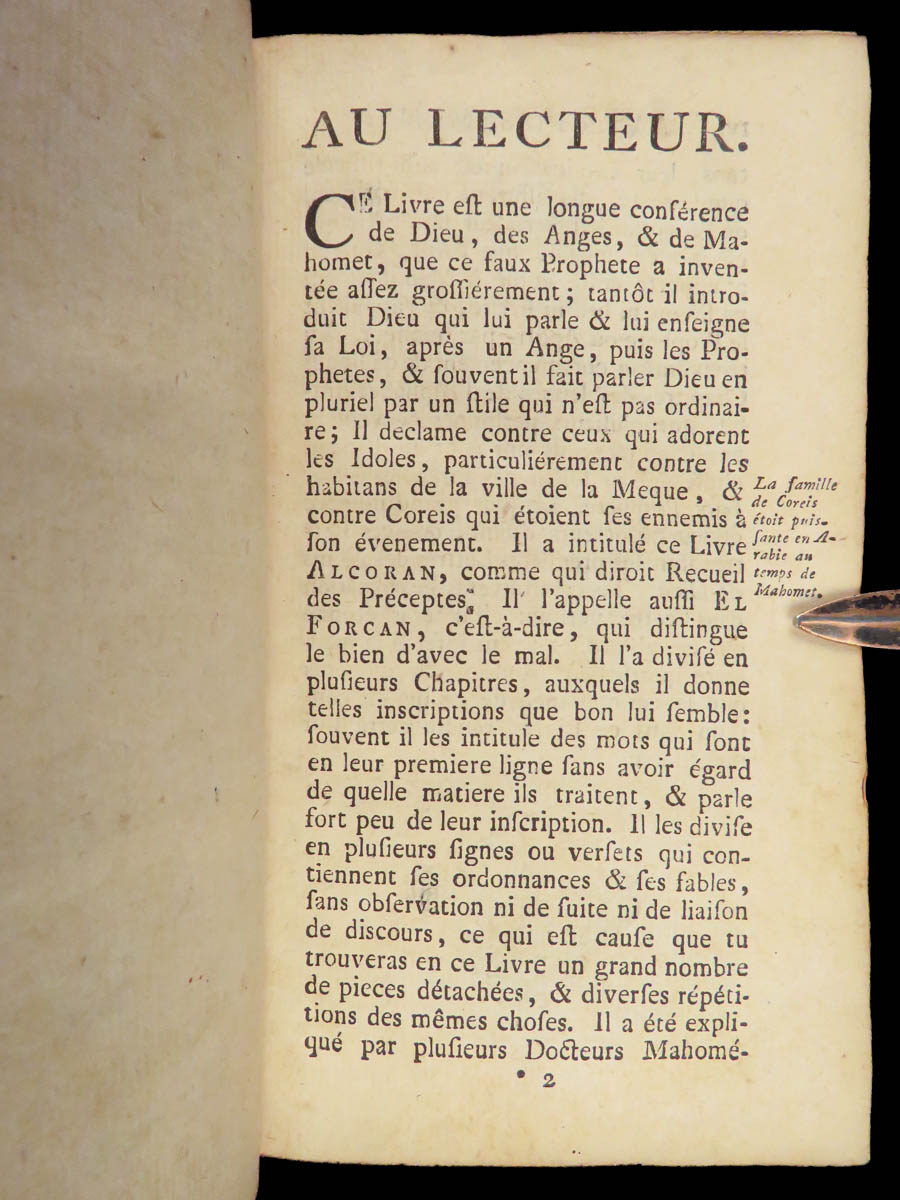 AU LECTEUR.
CE Livre eſt une longue conférence
de Dieu, des Anges, & de Ma-
homet, que ce faux Prophete a inven-
tée aſſez groſſiérement; tantôt il intro-
duit Dieu qui lui parle & lui enſeigne
ſa Loi, après un Ange, puis les Pro-
phetes, & ſouvent il fait parler Dieu en
pluriel par un ſtile qui n'eſt pas ordinai-
re; Il declame contre ceux qui adorent
les Idoles, particuliérement contre les
habitans de la ville de la Meque, &
contre Coreis qui étoient ſes ennemis à
ſon évenement. Il a intitulé ce Livre
ALCORAN, comme qui diroit Recueil
des Préceptes. Il l'appelle auſſi EL
FORCAN, c'eſt-à-dire, qui diſtingue
le bien d'avec le mal. Il l'a diviſé en
pluſieurs Chapitres, auxquels il donne
telles inscriptions que bon lui ſemble:
ſouvent il les intitule des mots qui ſont
en leur premiere ligne ſans avoir égard
de quelle matiere ils traitent, & parle
fort peu de leur inſcription. Il les diviſe
en pluſieurs ſignes ou verſets qui con-
tiennent ſes ordonnances & ſes fables,
ſans obſervation ni de ſuite ni de liaiſon
de discours, ce qui eſt cauſe que tu
trouveras en ce Livre un grand nombre
de pieces détachées, & diverſes répéti-
tions des mêmes choſes. Il a été expli-
qué par pluſieurs Docteurs Mahomé-
* 2
La famille
de Coreis
étoit puiſ-
ſante en A-
rabie au
temps de
Mahomet.